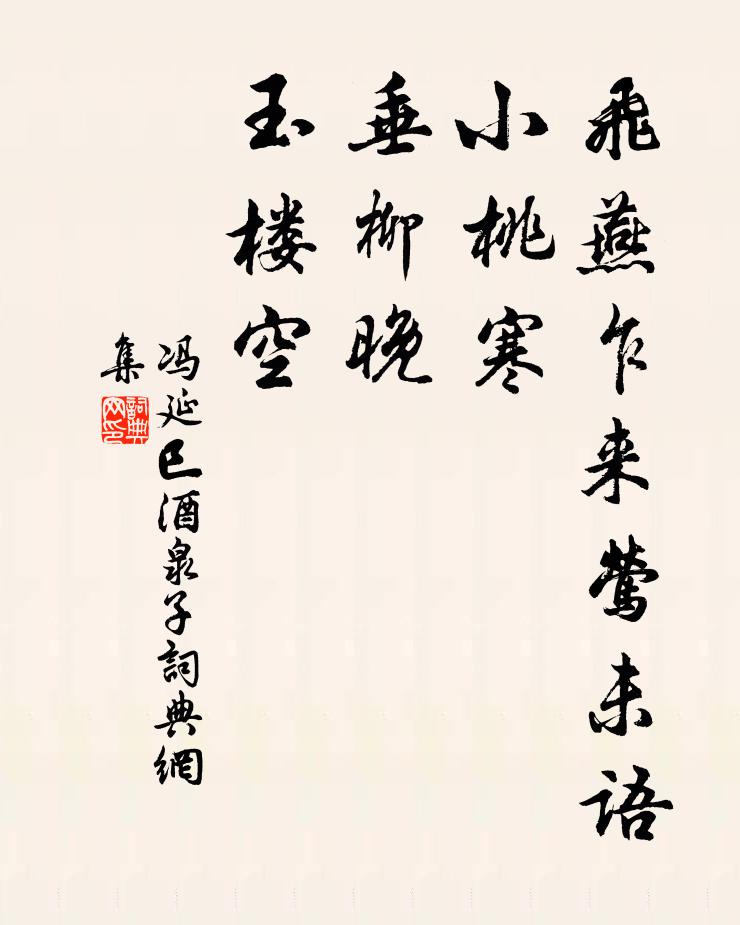 飛燕乍来鶯未語
小桃寒
垂柳晚
玉楼空
冯延巳酒泉子詞典網
集
詞典
网印